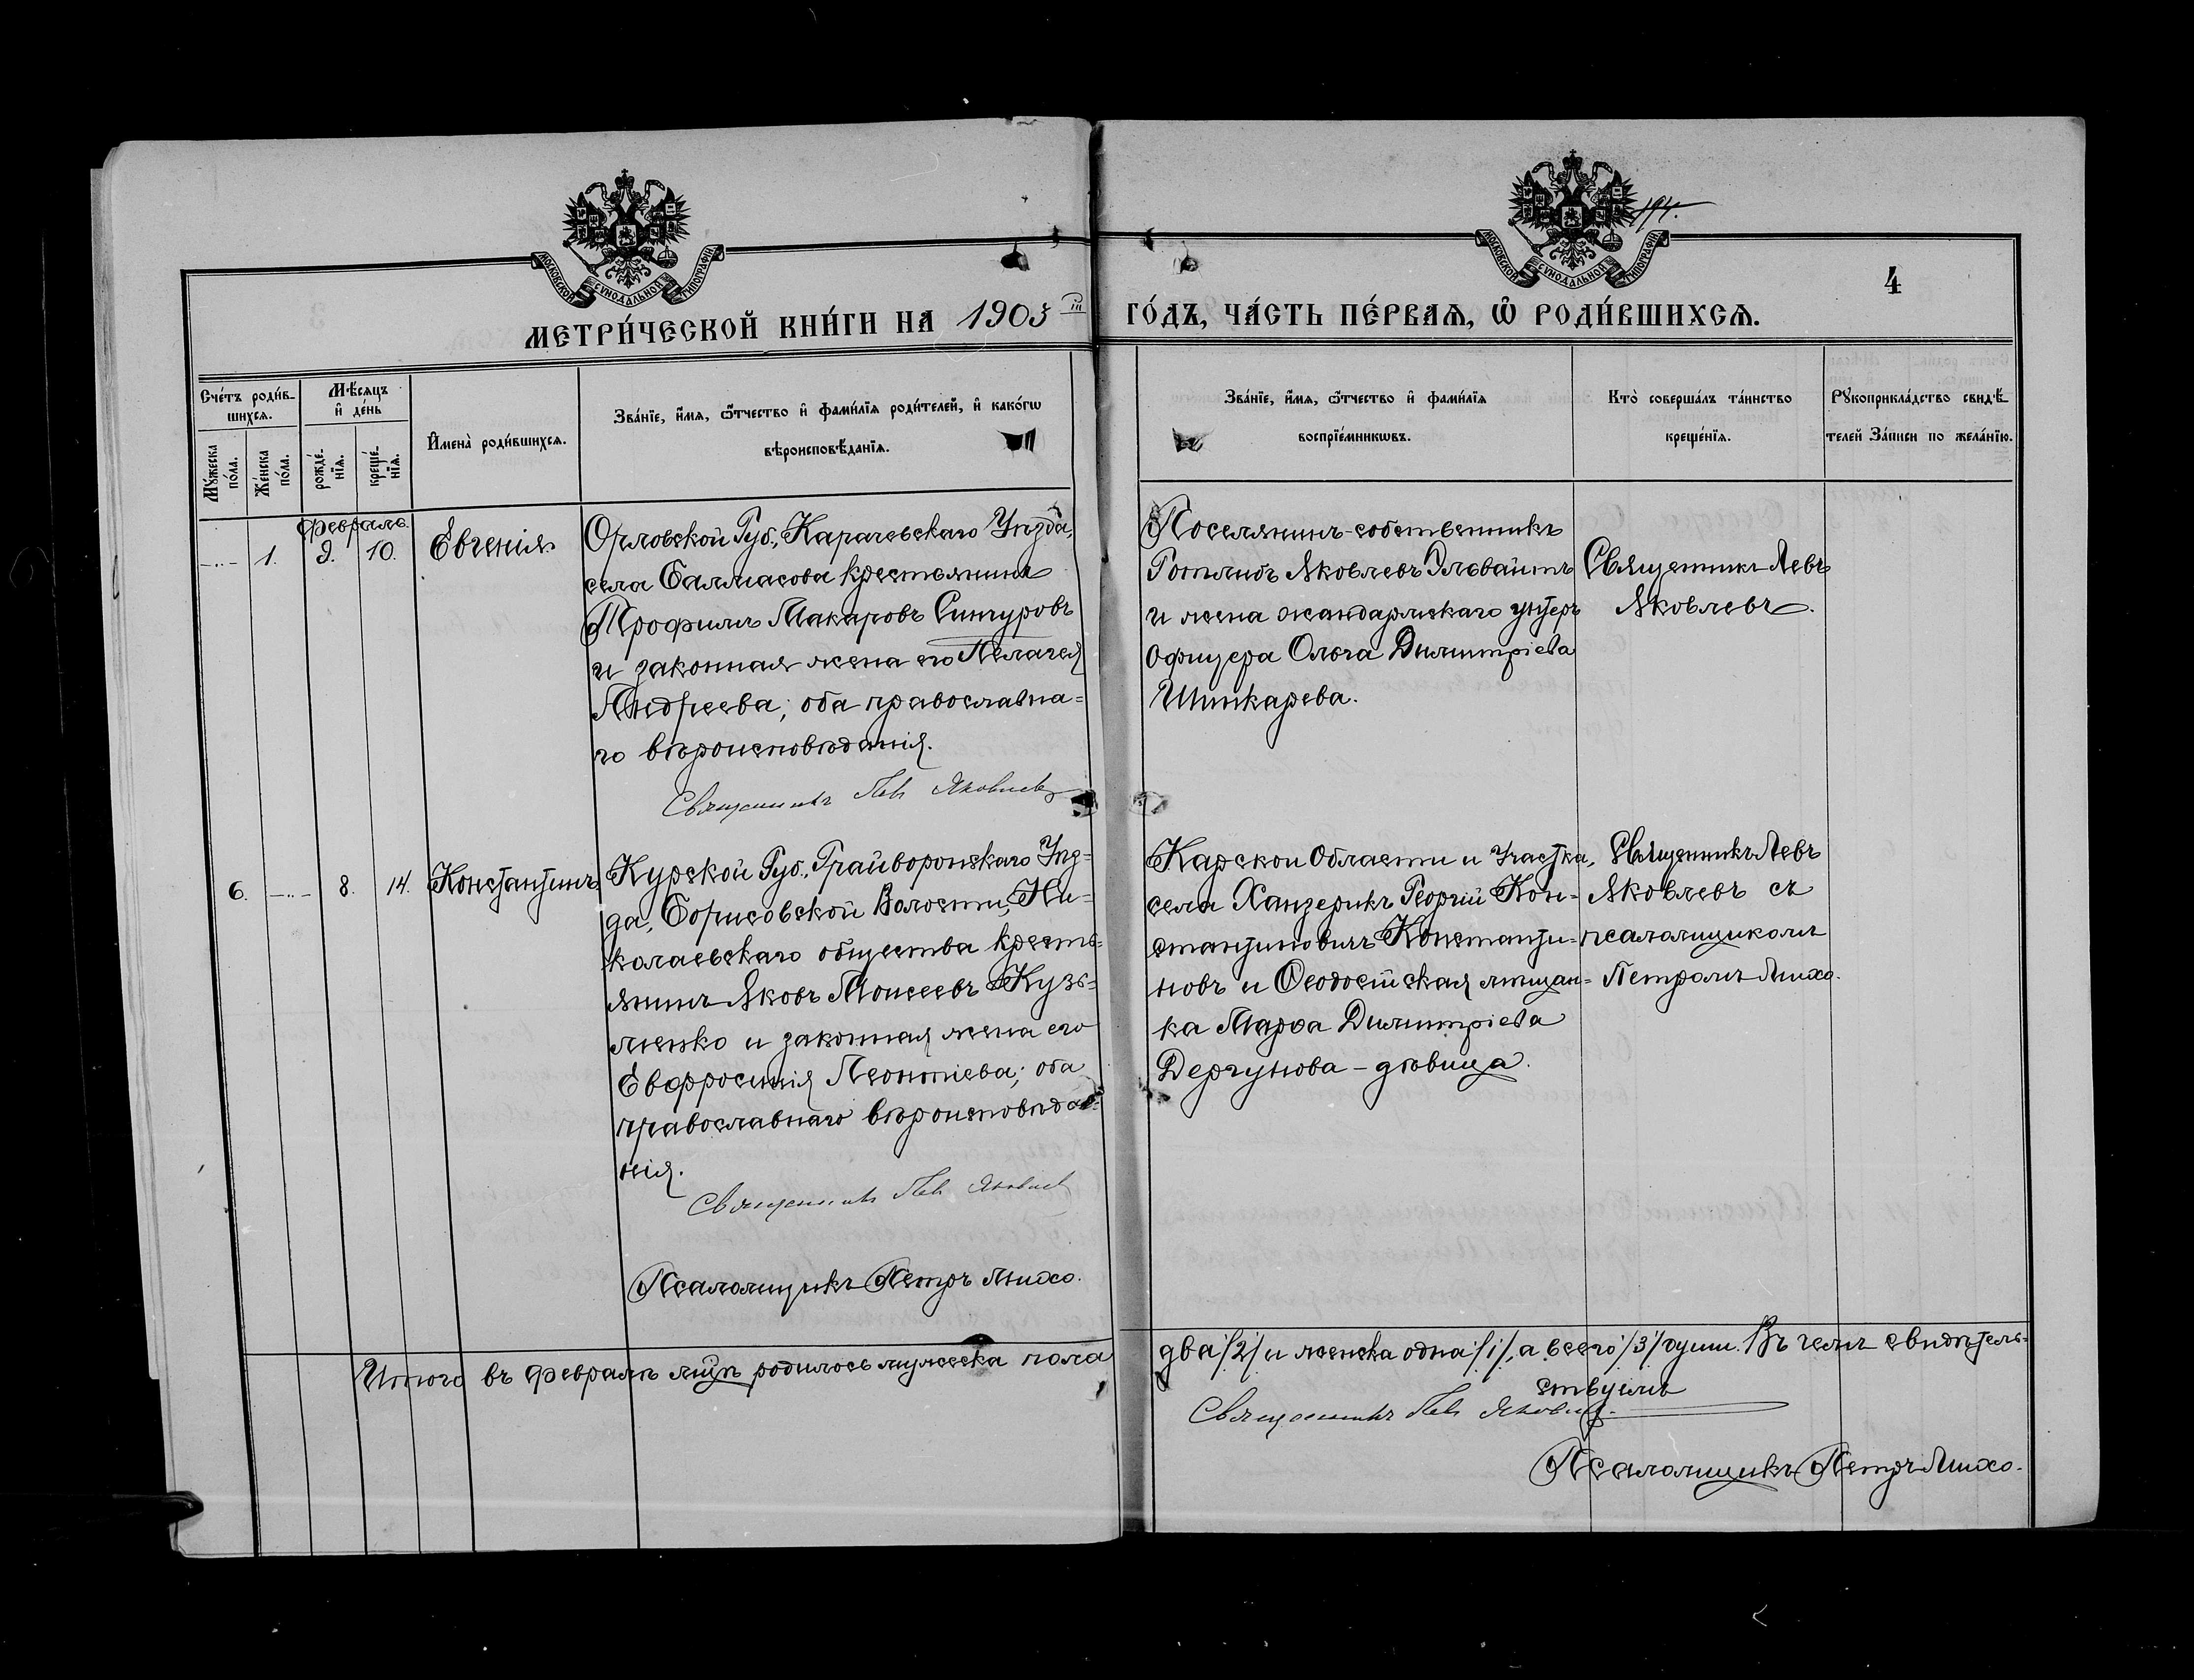 191.
МОСКОВСКОЙ СѴНОДАЛЬНОЙ ТИПОГРАФІИ
МОСКОВСКОЙ СѴНОДАЛЬНОЙ ТИПОГРАФІИ
4
МЕТРИ́ЧЕСКОЙ КНИ́ГИ НА 1903 го́дъ, ча́сть пе́рваѧ, ѡ҆ роди́вшихсѧ.
Сче́тъ роди́в-
шихсѧ.
Му́жеска по́ла.
Же́нска по́ла.
Мѣ́сѧцъ
и҆ де́нь
рожде́-
нїѧ.
креще́-
нїѧ.
И҆мена̀ роди́вшихсѧ.
Зва́нїе, и҆́мѧ, ѻ҆́тчество и҆ фами́лїѧ роди́телей, и҆ како́гѡ
вѣроисповѣ́данїѧ.
Зва́нїе, и҆́мѧ, ѻ҆́тчество и҆ фами́лїѧ
воспрїе́мникѡвъ.
Кто̀ соверша́лъ та́инство
креще́нїѧ.
Рꙋкоприкла́дство свидѣ́-
телей За́писи по жела́нїю.
Февраль.
1.
2.
10.
Евгенія
Орловской Губ., Карачевскаго Уѣзда,
села Балмасова крестьянинъ
Трофимъ Макаровъ
и законная жена его Пелагея
Андреева; оба православна-
го вѣроисповѣданія.
Священникъ Левъ Яковлевъ
Поселянинъ-собственникъ
Готлибъ Яковлевъ
и жена жандармскаго унтеръ
офицера Ольга Димитріева
Шинкарева.
Священникъ Левъ
Яковлевъ.
6.
8.
14.
Константинъ
Курской Губ., Грайворонскаго Уѣз-
да, Борисовской Волости, Ни-
колаевскаго общества кресть-
янинъ Яковъ Моисеевъ Кузь-
менко и законная жена его
Евфросинія Леонтіева; оба
православнаго вѣроисповѣда-
нія.
Священникъ Левъ Яковлевъ
Псаломщикъ Петръ Лихо.
Карской Области и Участка,
села Ханзерикъ Георгій Кон-
стантиновичъ Константи-
новъ и Ѳеодосійская мѣщан-
ка Марѳа Димитріева
Дергунова - дѣвица.
Священникъ Левъ
Яковлевъ съ
псаломщикомъ
Петромъ Лихо.
Итого въ февралѣ мцѣ родилось мужеска пола
два /2/ и женска одна /1/, а всего /3/ души. Въ чемъ свидѣтель-
ствуемъ
Священникъ Левъ Яковлевъ
Псаломщикъ Петръ Лихо.